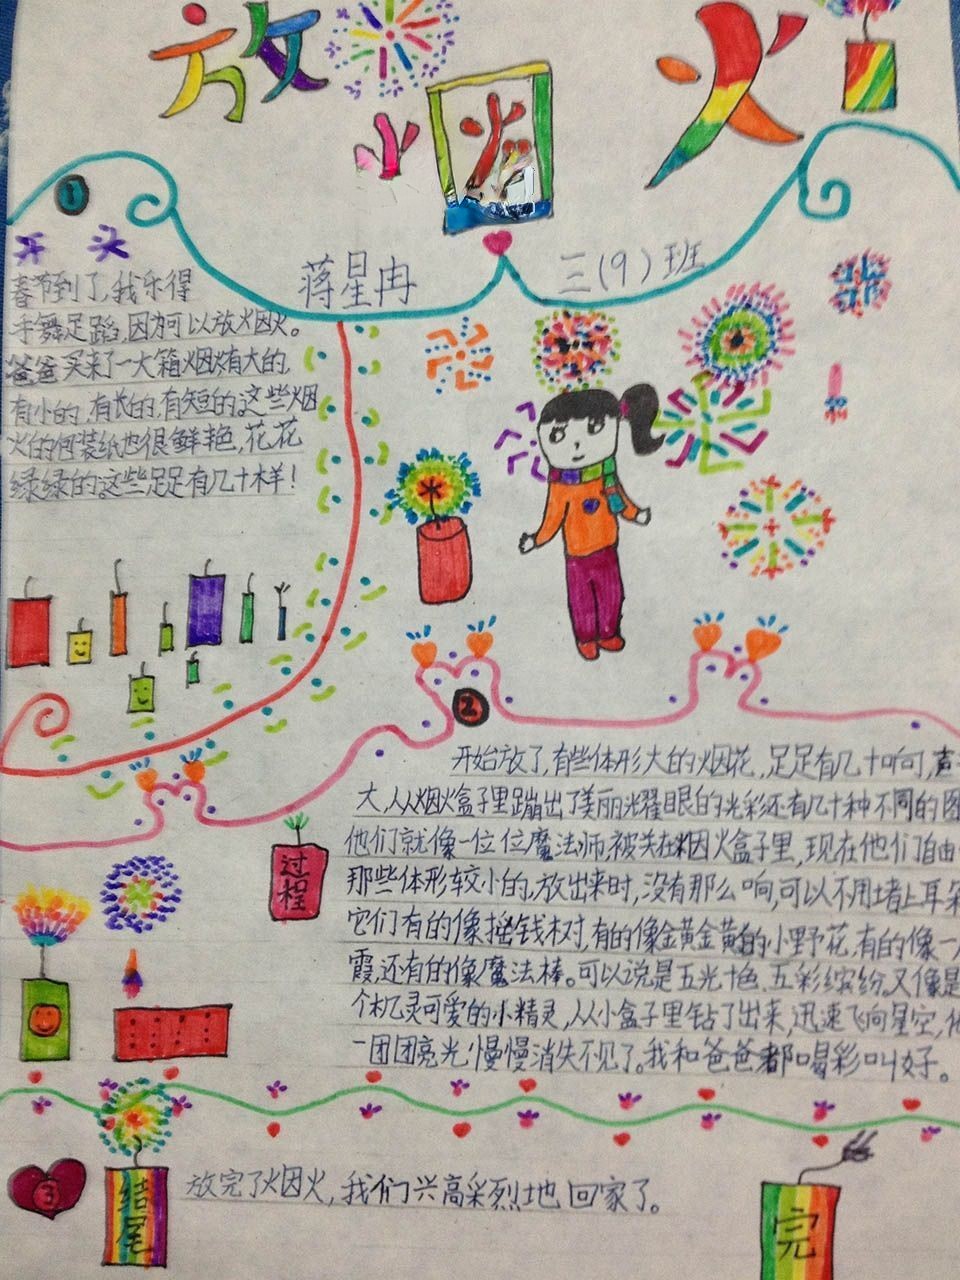 放烟火
蒋星冉
三(9)班
1
开头
春节到了,我乐得
手舞足蹈,因为可以放火因火。
爸爸买来了一大箱烟火有大的,
有小的,有长的,有短的,这些烟
火的包装纸也很鲜艳,花花
绿绿的,这些足足有几十样!
2
过程
开始放了,有些体形大的烟花,足足有几十响,声
大,从烟火盒子里蹦出了美丽光耀眼的光彩还有几十种不同的图
他们就像一位位魔法师,被关在烟火盒子里,现在他们自由
那些体形较小的,放出来时,没有那么响,可以不用堵上耳朵
它们有的像摇钱树,有的像金黄金黄的小野花,有的像一
霞还有的像魔法棒。可以说是五光十色、五彩缤纷。又像是
个机灵可爱的小精灵,从小盒子里钻了出来,迅速飞向星空,
一团团亮光,慢慢消失不见了。我和爸爸都喝彩叫好。
3
结尾
放完了火因火,我们兴高采烈地回家了。
完